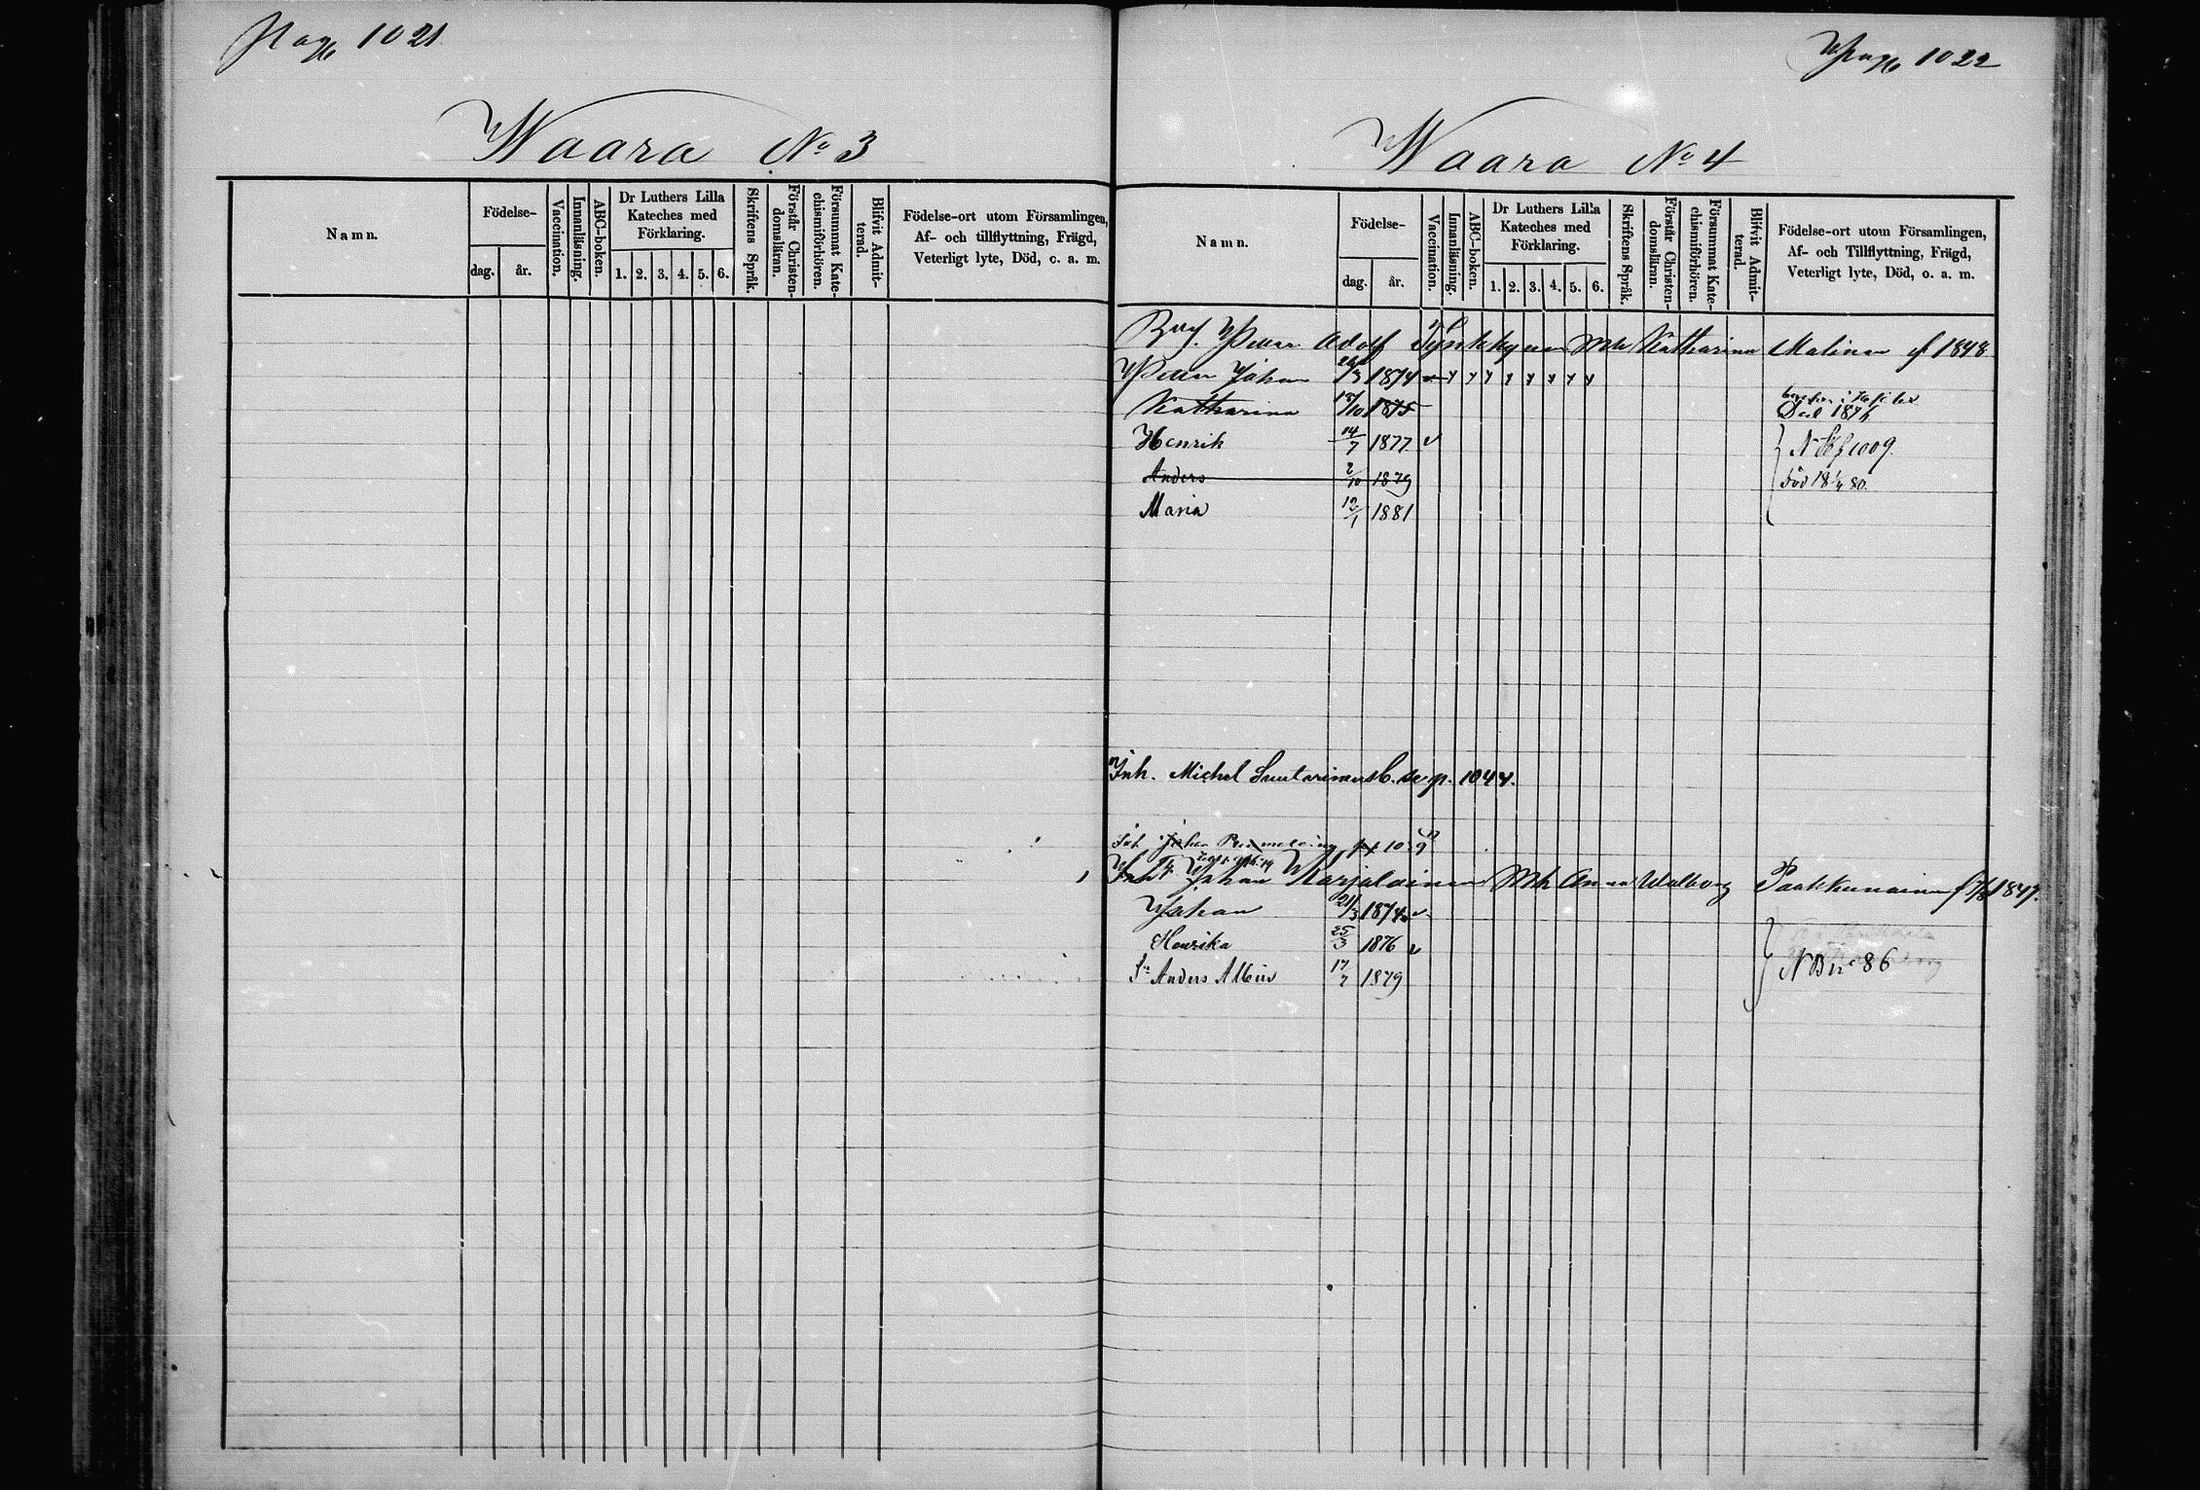 Pag 1021
Waara No 3
Namn.
Födelse-
dag.
år.
Vaccination.
Innanläsning.
ABC-boken.
Dr Luthers Lilla
Kateches med
Förklaring.
1. 2. 3. 4. 5. 6.
Skriftens Språk.
Förstår Christen-
domsläran.
Försummat Kate-
chismiförhören.
Blifvit Admit-
terad.
Födelse-ort utom Församlingen,
Af- och tillflyttning, Frägd,
Veterligt lyte, Död, c. a. m.
Pag 1022
Waara No 4
Namn.
Födelse-
dag.
år.
Vaccination.
Innanläsning.
ABC-boken.
Dr Luthers Lilla
Kateches med
Förklaring.
1. 2. 3. 4. 5. 6.
Skriftens Språk.
Förstår Christen-
domsläran.
Försummat Kate-
chismiförhören.
Blifvit Admit-
terad.
Födelse-ort utom Församlingen,
Af- och Tillflyttning, Frägd,
Veterligt lyte, Död, o. a. m.
Petter Adolf Mh Katharina Malinen f 1848
Petter Johan /3 1874
Katharina /10 1875 Död 1876
Henrik 14/7 1877 1009.
Anders 2/10 1879 80.
Maria 12/1 1881
Inh. Michel se p. 1044.
Johan
Johan Karjalainen Mh Anna Walborg Paakkunainen f 1847.
Johan 21/3 1874
Henrika 25/3 1876 NB nr 86
Anders Albin 17/7 1879